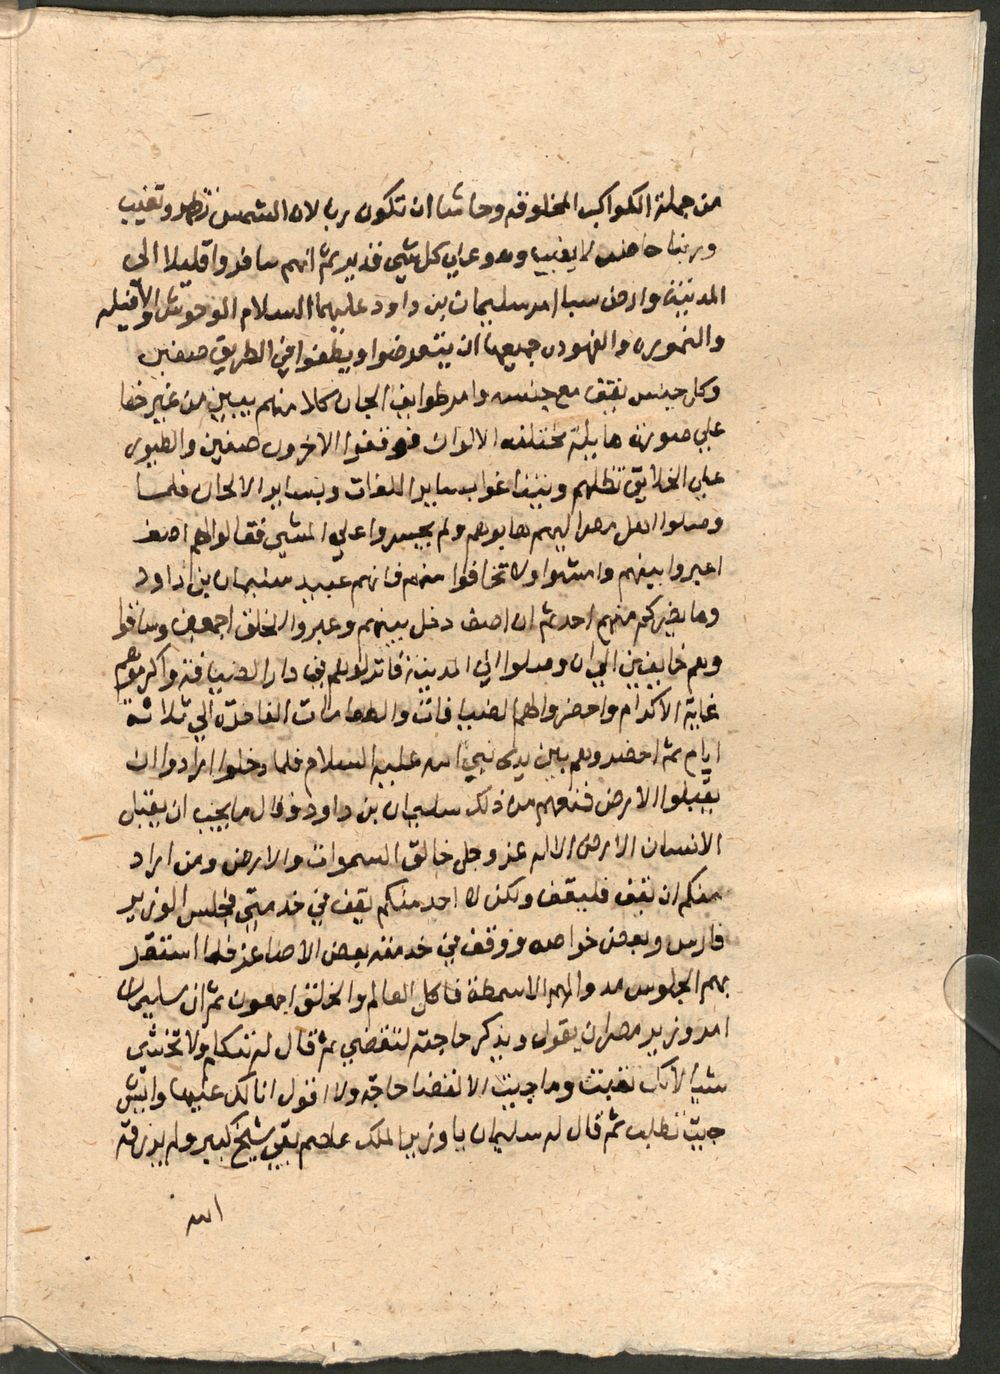 من جملة الكواكب المخلوقه وحاشا ان تكون ربا لان الشمس تظهر وتغيب
وربنا حاضر لا يغيب وهو علي كل شي قدير ثم انهم سافروا قليلا الى
المدينة وارض سبا امر سليمان بن داود عليهما السلام الوحوش والافيله
والنموره والفهوده جميعها ان يتعرضوا ويطفوا في الطريق صفين
وكل جنس يقف مع جنسه وامر طوايف الجان كلا منهم يبين من غير خفا
علي صورة هايلة مختلفه الالوان فوقفوا الاخرون صفين والطيور
علي الخلايق تظلهم وتتناغوا بساير اللغات وبساير الالحان فلما
وصلوا اهل مصر اليهم هابوهم ولم يجسروا علي المشي فقال لهم اصف
اعبروا بينهم وامشوا ولا تخافوا منهم فانهم عبيد سليمان بن داود
وما يضركم منهم احد ثم ان اصف دخل بينهم وعبروا الخلق اجمعين وسافروا
وهم خايفين الي ان وصلوا الي المدينة فانزلوهم في دار الضيافة واكرموهم
غاية الاكرام واحضروا لهم الضيافات والطعامات الفاخرة الي ثلاثة
ايام ثم احضروهم بين يدي نبي الله عليه السلام فلما دخلوا ارادوا ان
يقبلوا الارض فمنعهم من ذلك سليمان بن داود وقال ما يجب ان يقبل
الانسان الارض الا لله عز وجل خالق السموات والارض ومن اراد
منكم ان يقف فليقف ولكن لا احد منكم يقف في خدمتي فجلس الوزير
فارس وبعض خواصه ووقف في خدمته بعض الاصاغر فلما استقر
بهم الجلوس مدوا لهم الاسمطة فاكل العالم والخلق اجمعون ثم ان سليمان
امر وزير مصر ان يقول ويذكر حاجته لتنقضي ثم قال له تتكلم ولا تختشي
شيا لانك تعبت وما جيت الا لقضا حاجة ولا اقول انا لك عليها وايش
جيت تطلب ثم قال له سليمان يا وزير الملك عاصم بقي شيخ كبير ولم يرزقه
الله